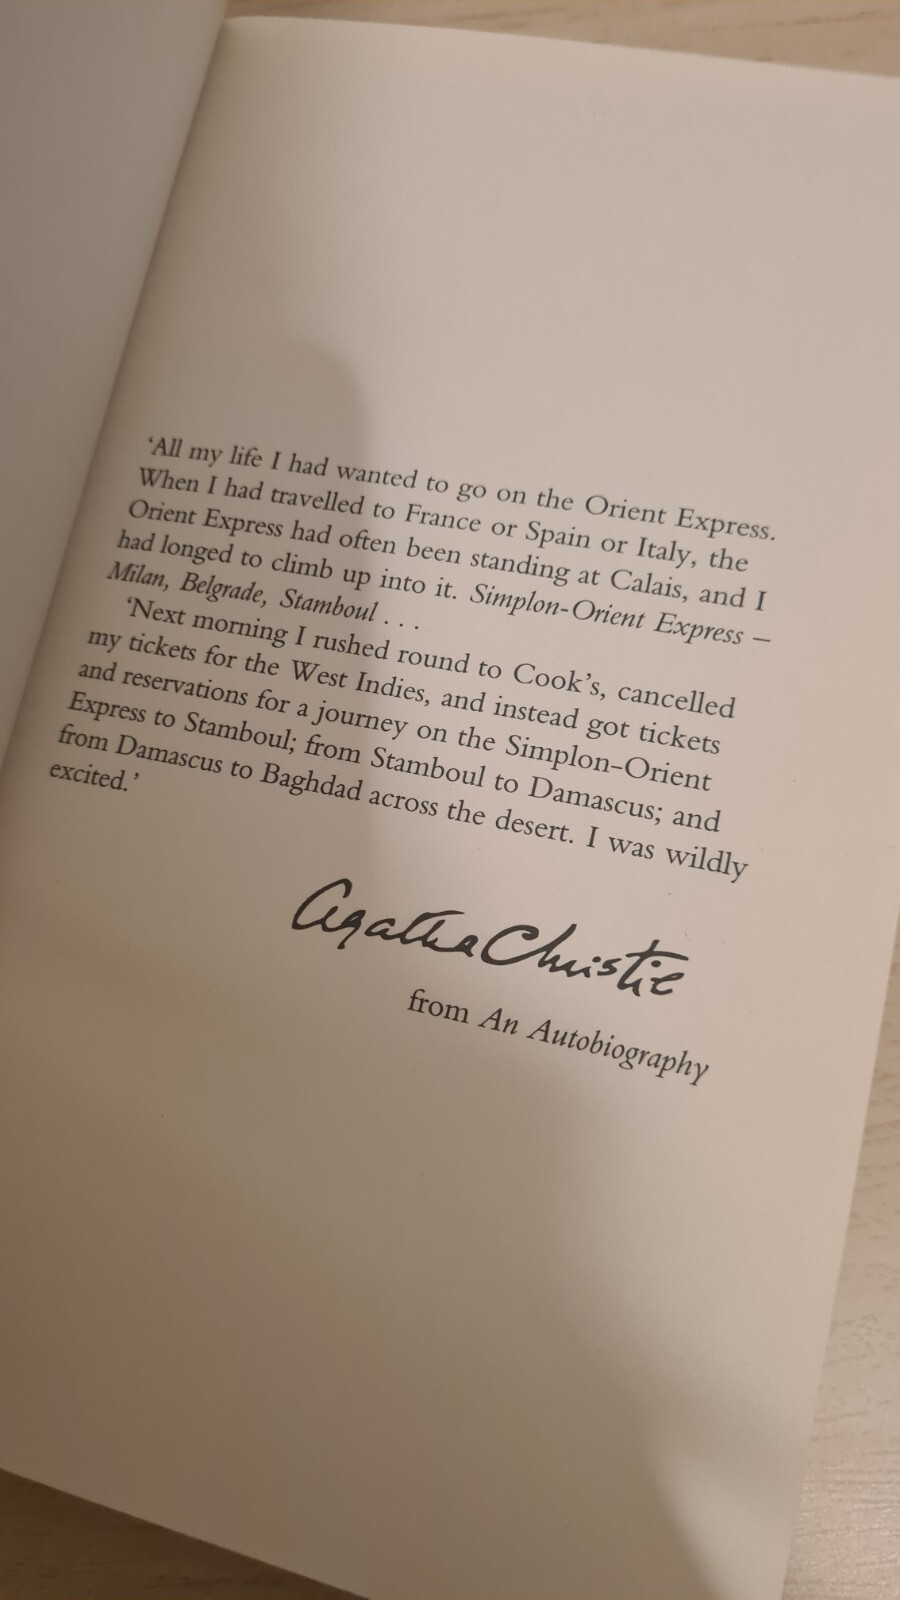 ‘All my life I had wanted to go on the Orient Express.
When I had travelled to France or Spain or Italy, the
Orient Express had often been standing at Calais, and I
had longed to climb up into it. Simplon-Orient Express –
Milan, Belgrade, Stamboul . . .
‘Next morning I rushed round to Cook’s, cancelled
my tickets for the West Indies, and instead got tickets
and reservations for a journey on the Simplon-Orient
Express to Stamboul; from Stamboul to Damascus; and
from Damascus to Baghdad across the desert. I was wildly
excited.’
Agatha Christie
from An Autobiography